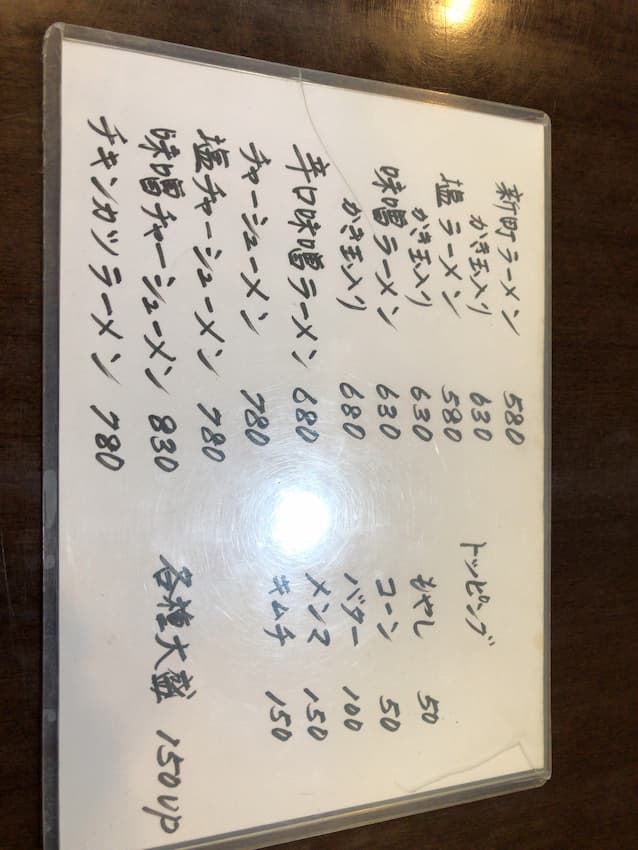 新町ラーメン 580
かき玉入り 630
塩ラーメン 580
かき玉入り 630
味噌ラーメン 630
かき玉入り 680
辛口味噌ラーメン 680
チャーシューメン 780
塩チャーシューメン 780
味噌チャーシューメン 830
チキンカツラーメン 780
トッピング
もやし 50
コーン 50
バター 100
メンマ 150
キムチ 150
各種大盛 150up